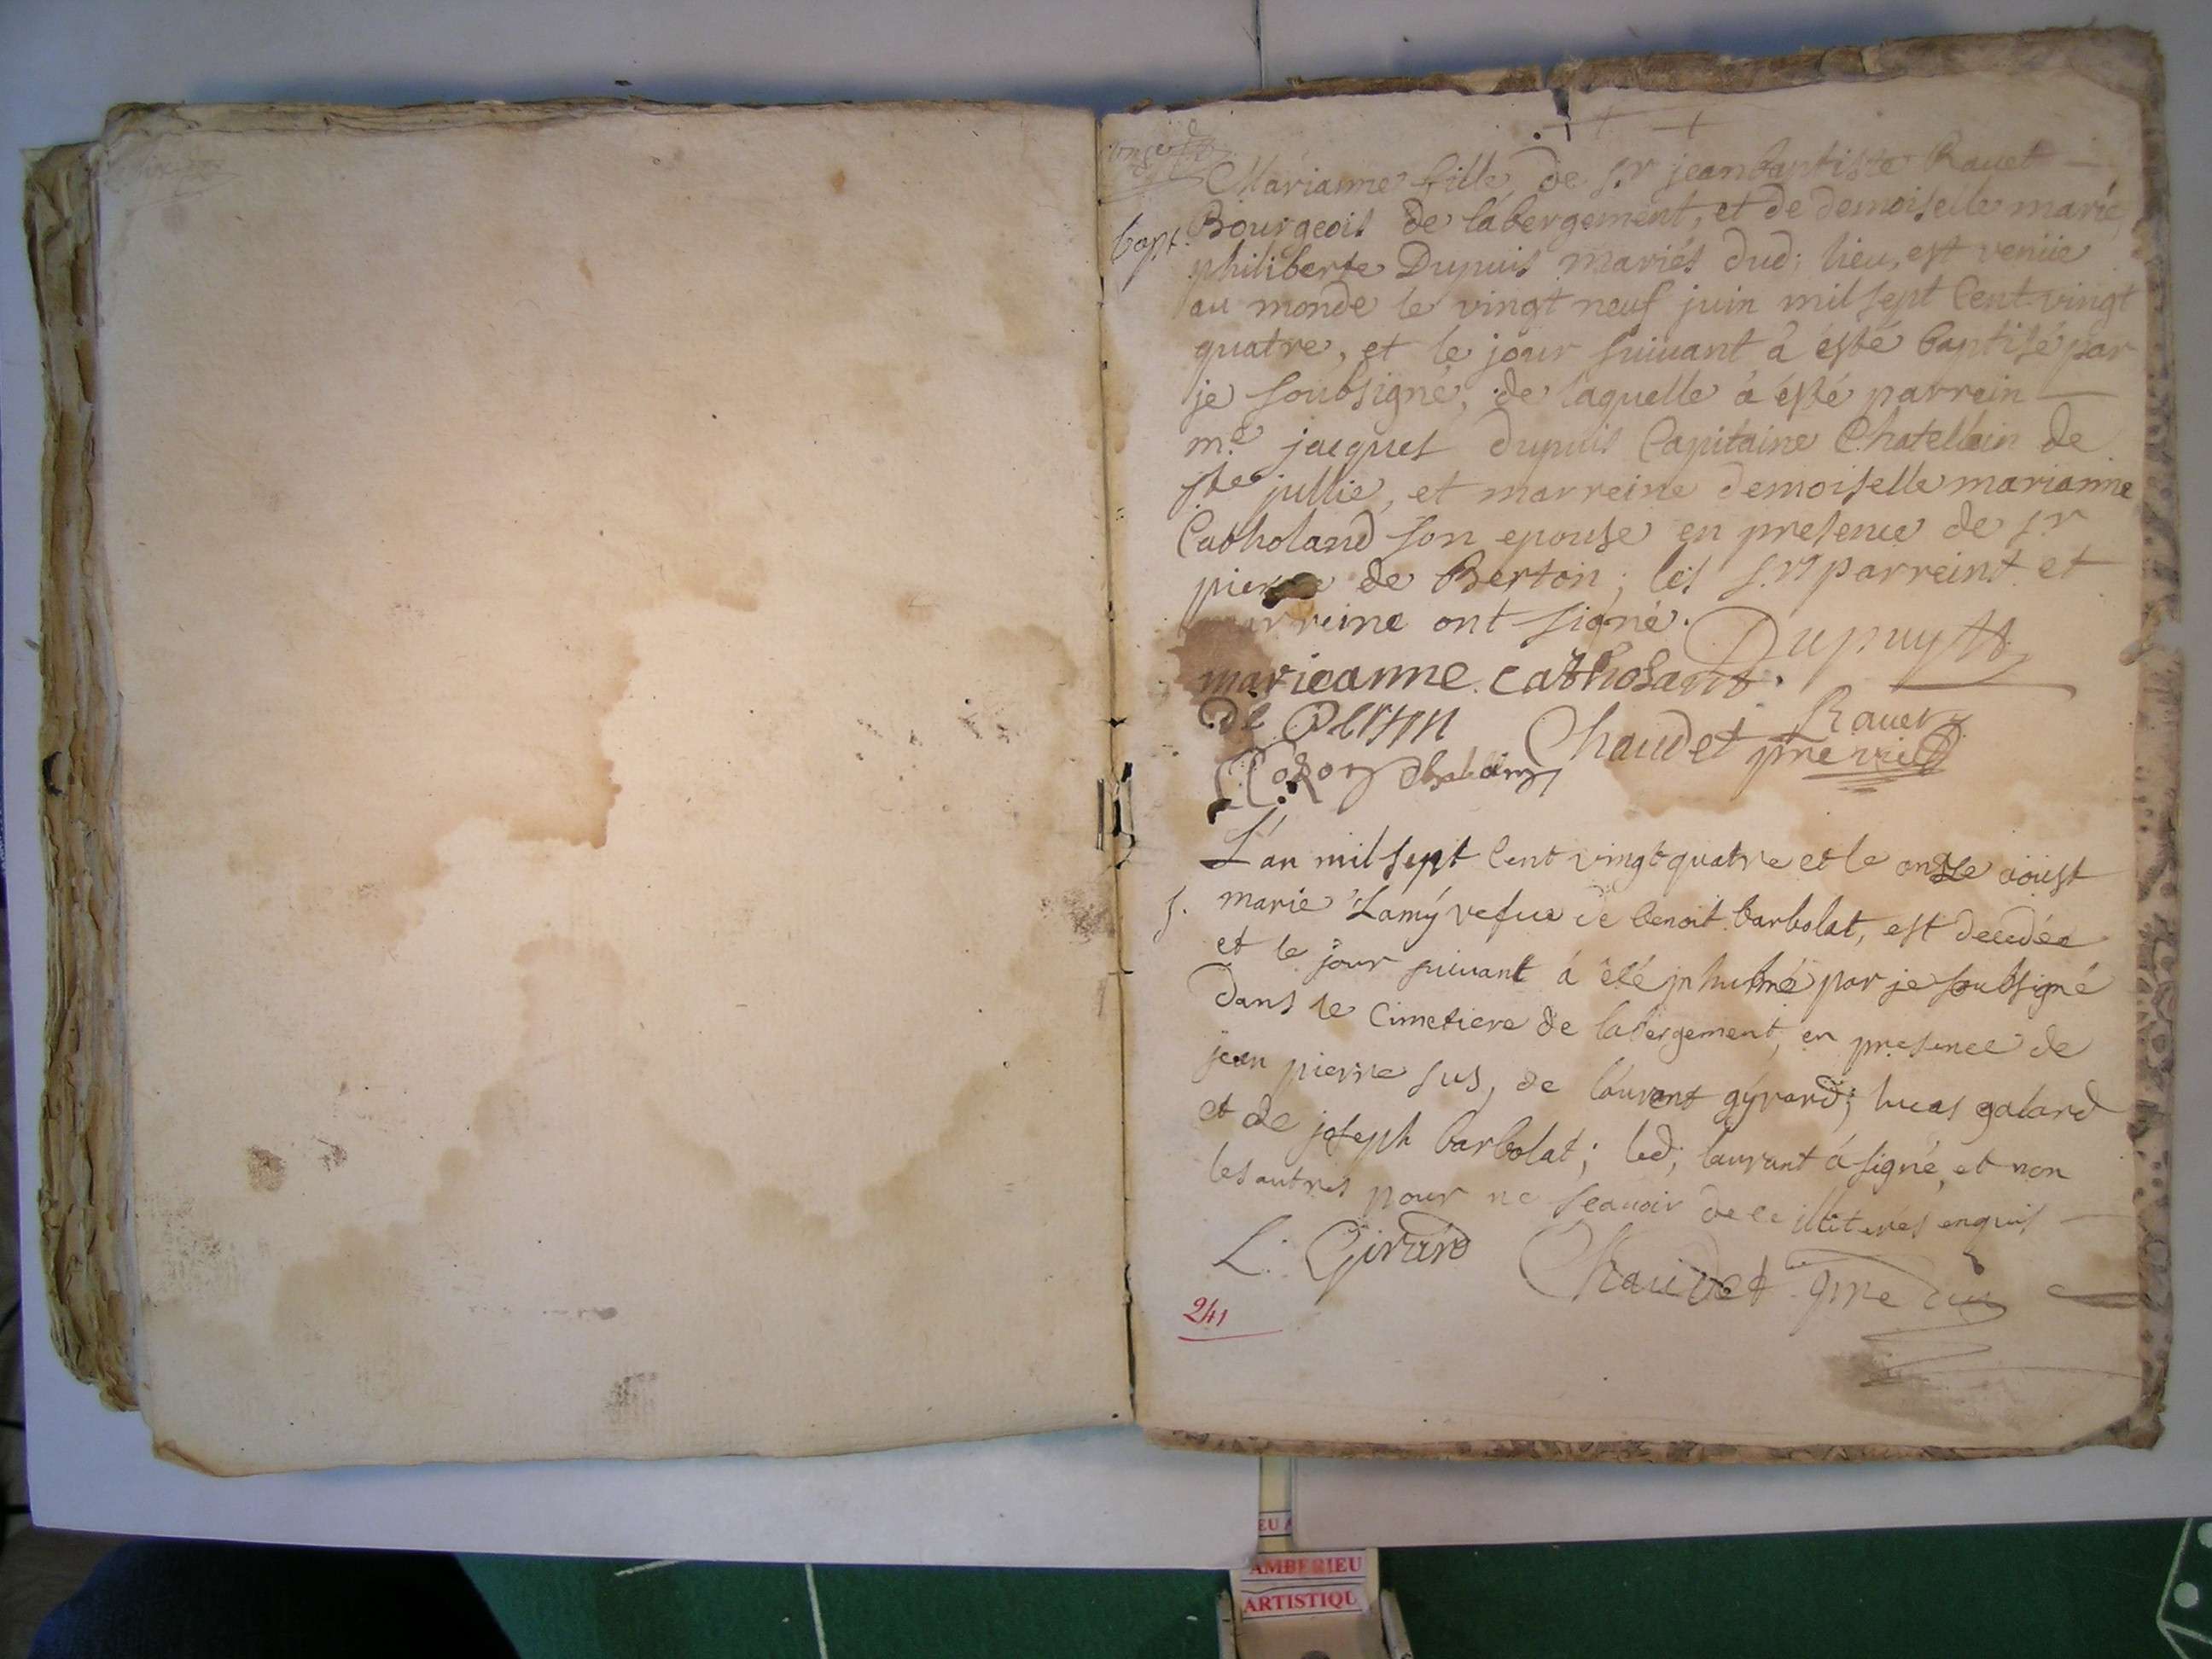 Marianne fille de sr jeanbaptiste Rauet
bapt. Bourgeois de labergement, et de demoiselle marie
philiberte Dupuis mariés dud; lieu, est venüe
au monde le vingt neuf juin mil sept Cent vingt
quatre, et le jour suiuant à ésté baptisé par
je soubsigné, de laquelle à ésté parrein
me jacques dupuis Capitaine Chatellain de
ste jullie, et marreine demoiselle marianne
Catholand son epouse en presence de sr
pierre de Berton; les srs parreint et
marreine ont signé. Dupuyts
marieanne. catholand.
de Berton Rauet
Chaudet pre
L'an mil sept Cent vingt quatre et le onze aoust
s. marie Lamÿ vefue de benoit barbolat, est decedée
et le jour suiuant à été jnhumé par je soubsigné
dans le Cimetiere de labergement, en presence de
jean pierre sus, de laurent gÿrard; lucas galard
et de joseph barbolat; led; laurant à signé, et non
les autres pour ne scauoir de ce illiterés enquis
L. Girard Chaudet pre
241
EU A
AMBERIEU
ARTISTIQU